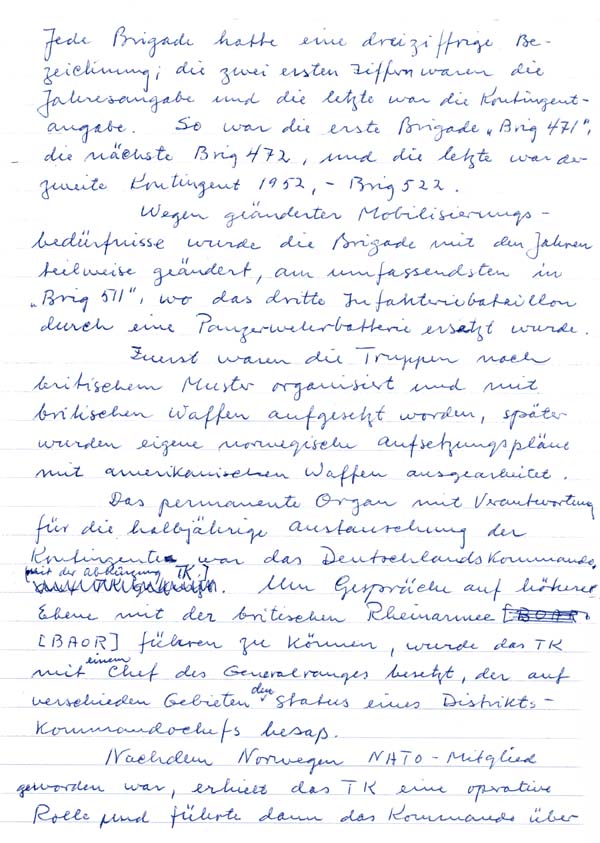 Jede Brigade hatte eine dreiziffrige Be-
zeichnung; die zwei ersten Ziffrn waren die
Jahresangabe und die letzte war die Kontingent-
angabe. So war die erste Brigade „Brig 471",
die nächste Brig 472, und die letzte war der
zweite Kontingent 1952, - Brig 522.
Wegen geänderter Mobilisierungs-
bedürfnisse wurde die Brigade mit den Jahren
teilweise geändert, am umfassendsten in
„Brig 511", wo das dritte Infanteriebataillon
durch eine Panzerwehrbatterie ersetzt wurde.
Zuerst waren die Truppen nach
britischem Muster organisiert und mit
britischen Waffen aufgesetzt worden, später
wurden eigene norwegische Aufsetzungspläne
mit amerikanischen Waffen ausgearbeitet.
Das permanente Organ mit Verantwortung
für die halbjährige Austauschung der
Kontingente war das Deutschlandskommando,
[mit der Abkürzung TK.]
. Um Gespräche auf höherer
Ebene mit der britischen Rheinarmee [BOAR]
[BAOR] führen zu können, wurde das TK
mit einem Chef des Generalranges besetzt, der auf
verschieden Gebieten den Status eines Distrikts-
kommandochefs besaß.
Nachdem Norwegen NATO-Mitglied
geworden war, erhielt das TK eine operative
Rolle und führte dann das Kommando über